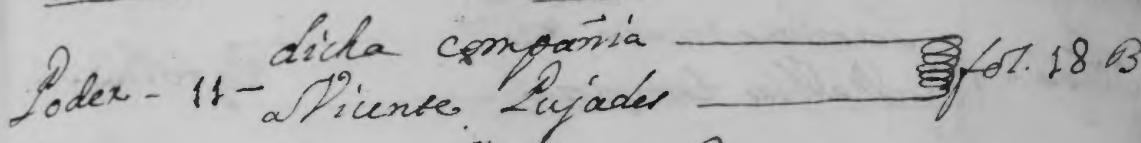 dicha compañia
Poder - 11 - a Vicente Pujades fol. 18 B